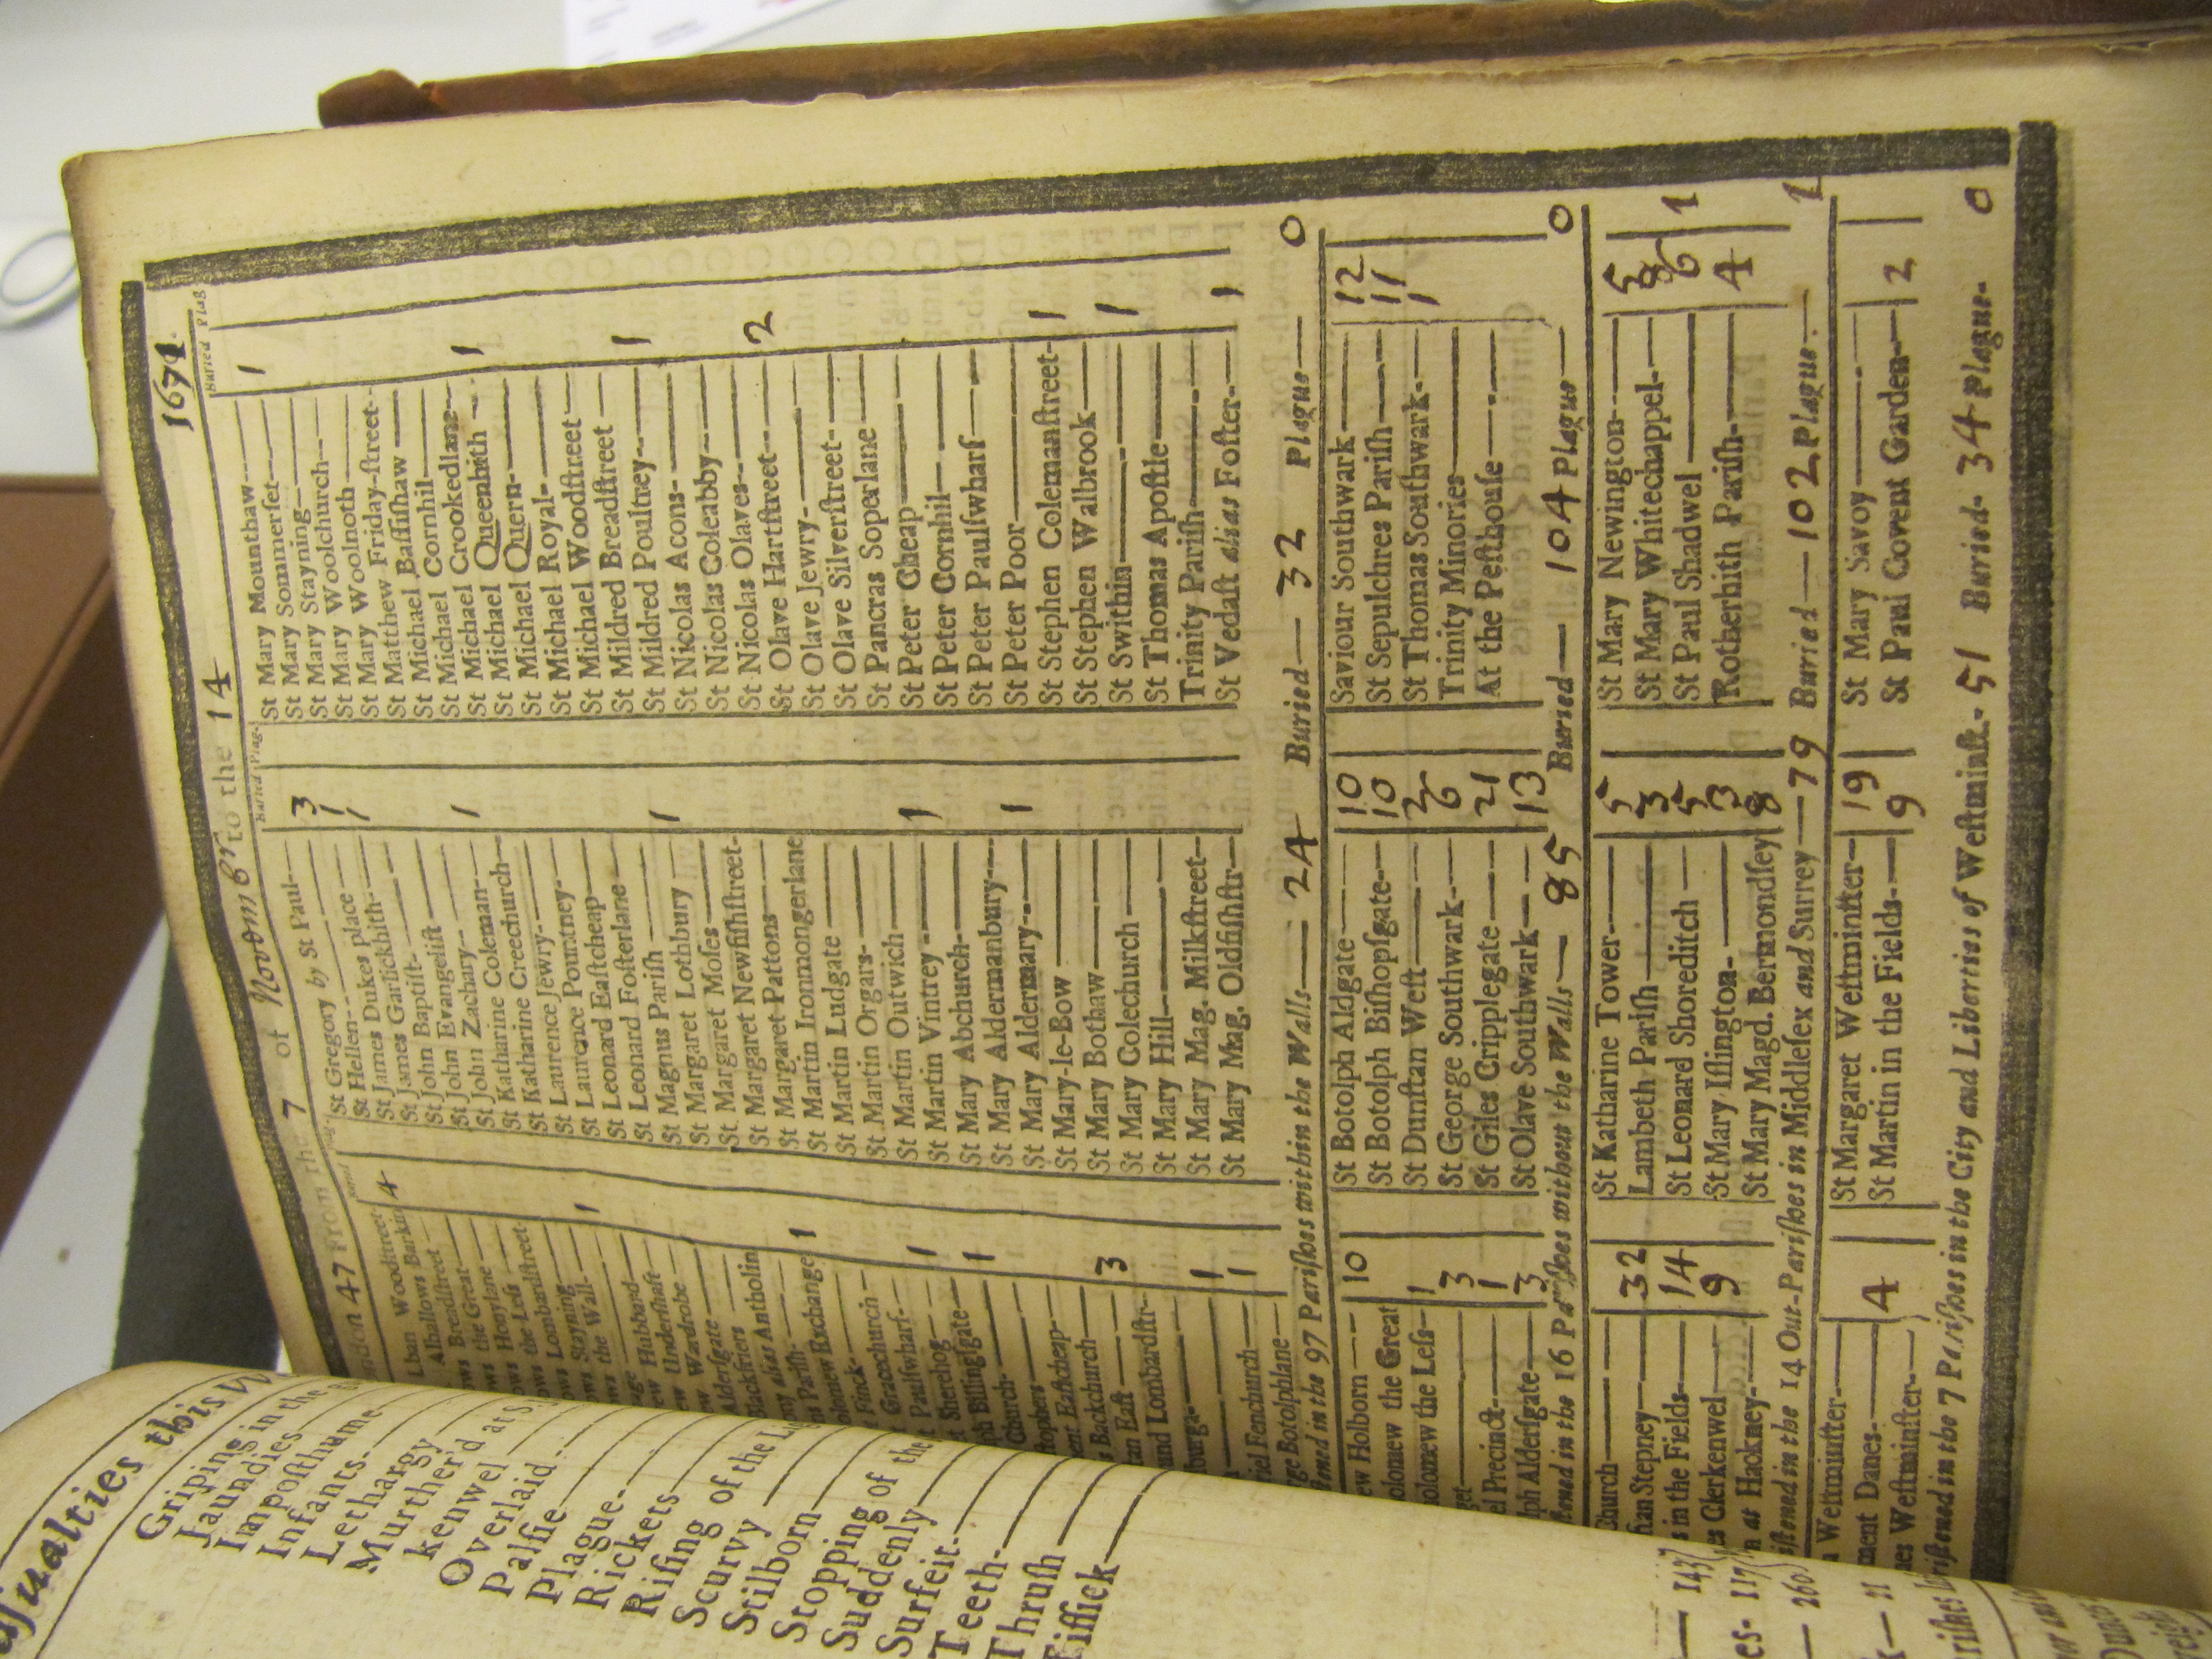 ndon 47 From the 7 of Novemb r to the 14 1671
Buried Plag.
Buried Plag
lban Woodstreet 4
Alhallows Barkin
ows Breadstreet
ows the Great
ows Honylane
ows the Less
ows Lombardstreet
ows Stayning 1
ows the Wall
age Hubbard
ew Undershaft
ew Wardrobe
Aldersgate
Blackfriers
ny alias Antholin
ns Parish
olomew Exchange 1
Finck
Gracechurch
Paulswharf
Sherehog 1
ph Billingsgate
Church 1
stophers
ent Eastcheap
Backchurch
tan East 3
und Lombardstr
burga
1
riel Fenchurch 1
rge Botolphlane
St Gregory by St Paul 3
St Hellen 1
St James Dukes place 1
St James Garlickhith
St John Baptist
St John Evangelist
St John Zachary 1
St Katharine Coleman
St Katharine Creechurch
St Laurence Jewry
St Laurence Pountney
St Leonard Eastcheap
St Leonard Fosterlane
St Magnus Parish 1
St Margaret Lothbury
St Margaret Moses
St Margaret Newfishstreet
St Margaret Pattons
St Martin Ironmongerlane
St Martin Ludgate
St Martin Orgars
St Martin Outwich
St Martin Vintrey 1
St Mary Abchurch
St Mary Aldermanbury
St Mary Aldermary 1
St Mary-le-Bow
St Mary Bothaw
St Mary Colechurch
St Mary Hill
St Mary Mag. Milkstreet
St Mary Mag. Oldfishstr
St Mary Mounthaw 1
St Mary Sommerset
St Mary Stayning
St Mary Woolchurch
St Mary Woolnoth
St Matthew Friday-street
St Michael Bassishaw
St Michael Cornhil
St Michael Crookedlane 1
St Michael Queenhith
St Michael Quern
St Michael Royal
St Michael Woodstreet
St Mildred Breadstreet 1
St Mildred Poultrey
St Nicolas Acons
St Nicolas Coleabby
St Nicolas Olaves 2
St Olave Hartstreet
St Olave Jewry
St Olave Silverstreet
St Pancras Soperlane
St Peter Cheap
St Peter Cornhil
St Peter Paulswharf
St Peter Poor
St Stephen Colemanstreet 1
St Stephen Walbrook
St Swithin 1
St Thomas Apostle
Trinity Parish
St Vedast alias Foster 1
stened in the 97 Parishes within the Walls 24 Buried 32 Plague 0
ew Holborn 10
olomew the Great
olomew the Less 1
3
el Precinct 1
lph Aldersgate 3
St Botolph Aldgate 10
St Botolph Bishopsgate 10
St Dunstan West 2
St George Southwark 6
St Giles Cripplegate 21
St Olave Southwark 13
Saviour Southwark 12
St Sepulchres Parish 11
St Thomas Southwark 1
Trinity Minories
At the Pesthouse
stened in the 16 Parishes without the Walls 85 Buried 104 Plague 0
Church
tan Stepney 32
s in the Fields 14
es Clerkenwel 9
n at Hackney
St Katharine Tower 5
Lambeth Parish 3
St Leonard Shoreditch 5
St Mary Islington 3
St Mary Magd. Bermondsey 8
St Mary Newington 5
St Mary Whitechappel 8
St Paul Shadwel 6 1
Rotherhith Parish 4
istened in the 14 Out-Parishes in Middlesex and Surrey 79 Buried 102 Plague 1
Westminster
ment Danes 4
nes Westminster
St Margaret Westminster 19
St Martin in the Fields 9
St Mary Savoy
St Paul Covent Garden 2
bristened in the 7 Parishes in the City and Liberties of Westminst. 51 Buried 34 Plague 0
sualties this W
Griping in the
Jaundies
Imposthume
Infants
Lethargy
Murther'd at S
kenwel
Overlaid
Palsie
Plague
Rickets
Rising of the Li
Scurvy
Stilborn
Stopping of the
Suddenly
Surfeit
Teeth
Thrush
Tissick
143
es- 117
260
k 11
rishes